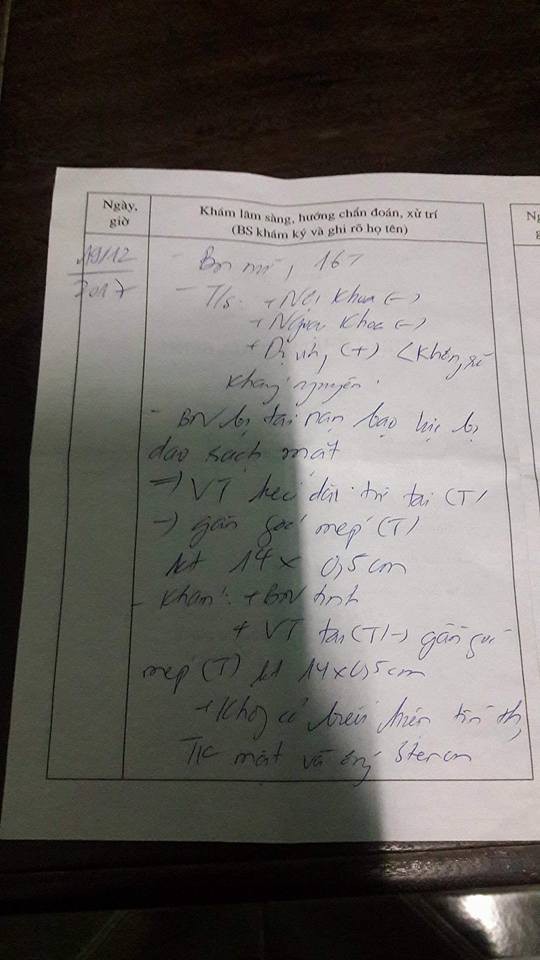 Ngày,
giờ
Khám lâm sàng, hướng chẩn đoán, xử trí
(BS khám ký và ghi rõ họ tên)
19/12
2017
- BN nữ, 16T
- T/s: + Nội khoa (-)
+ Ngoại khoa (-)
+ Dị ứng (+) (không rõ
kháng nguyên
- BN bị tai nạn bạo lực bị
dao rạch mặt
=> VT kéo dài từ tai (T)
-> gần góc mép (T)
kt 14 x 0,5cm
- Khám: + BN tỉnh
+ VT tai (T) -> gần góc
mép (T) kt 14x0,5cm
+ Không có biểu hiện tổn th
TK mặt và ống Stenon
N
g